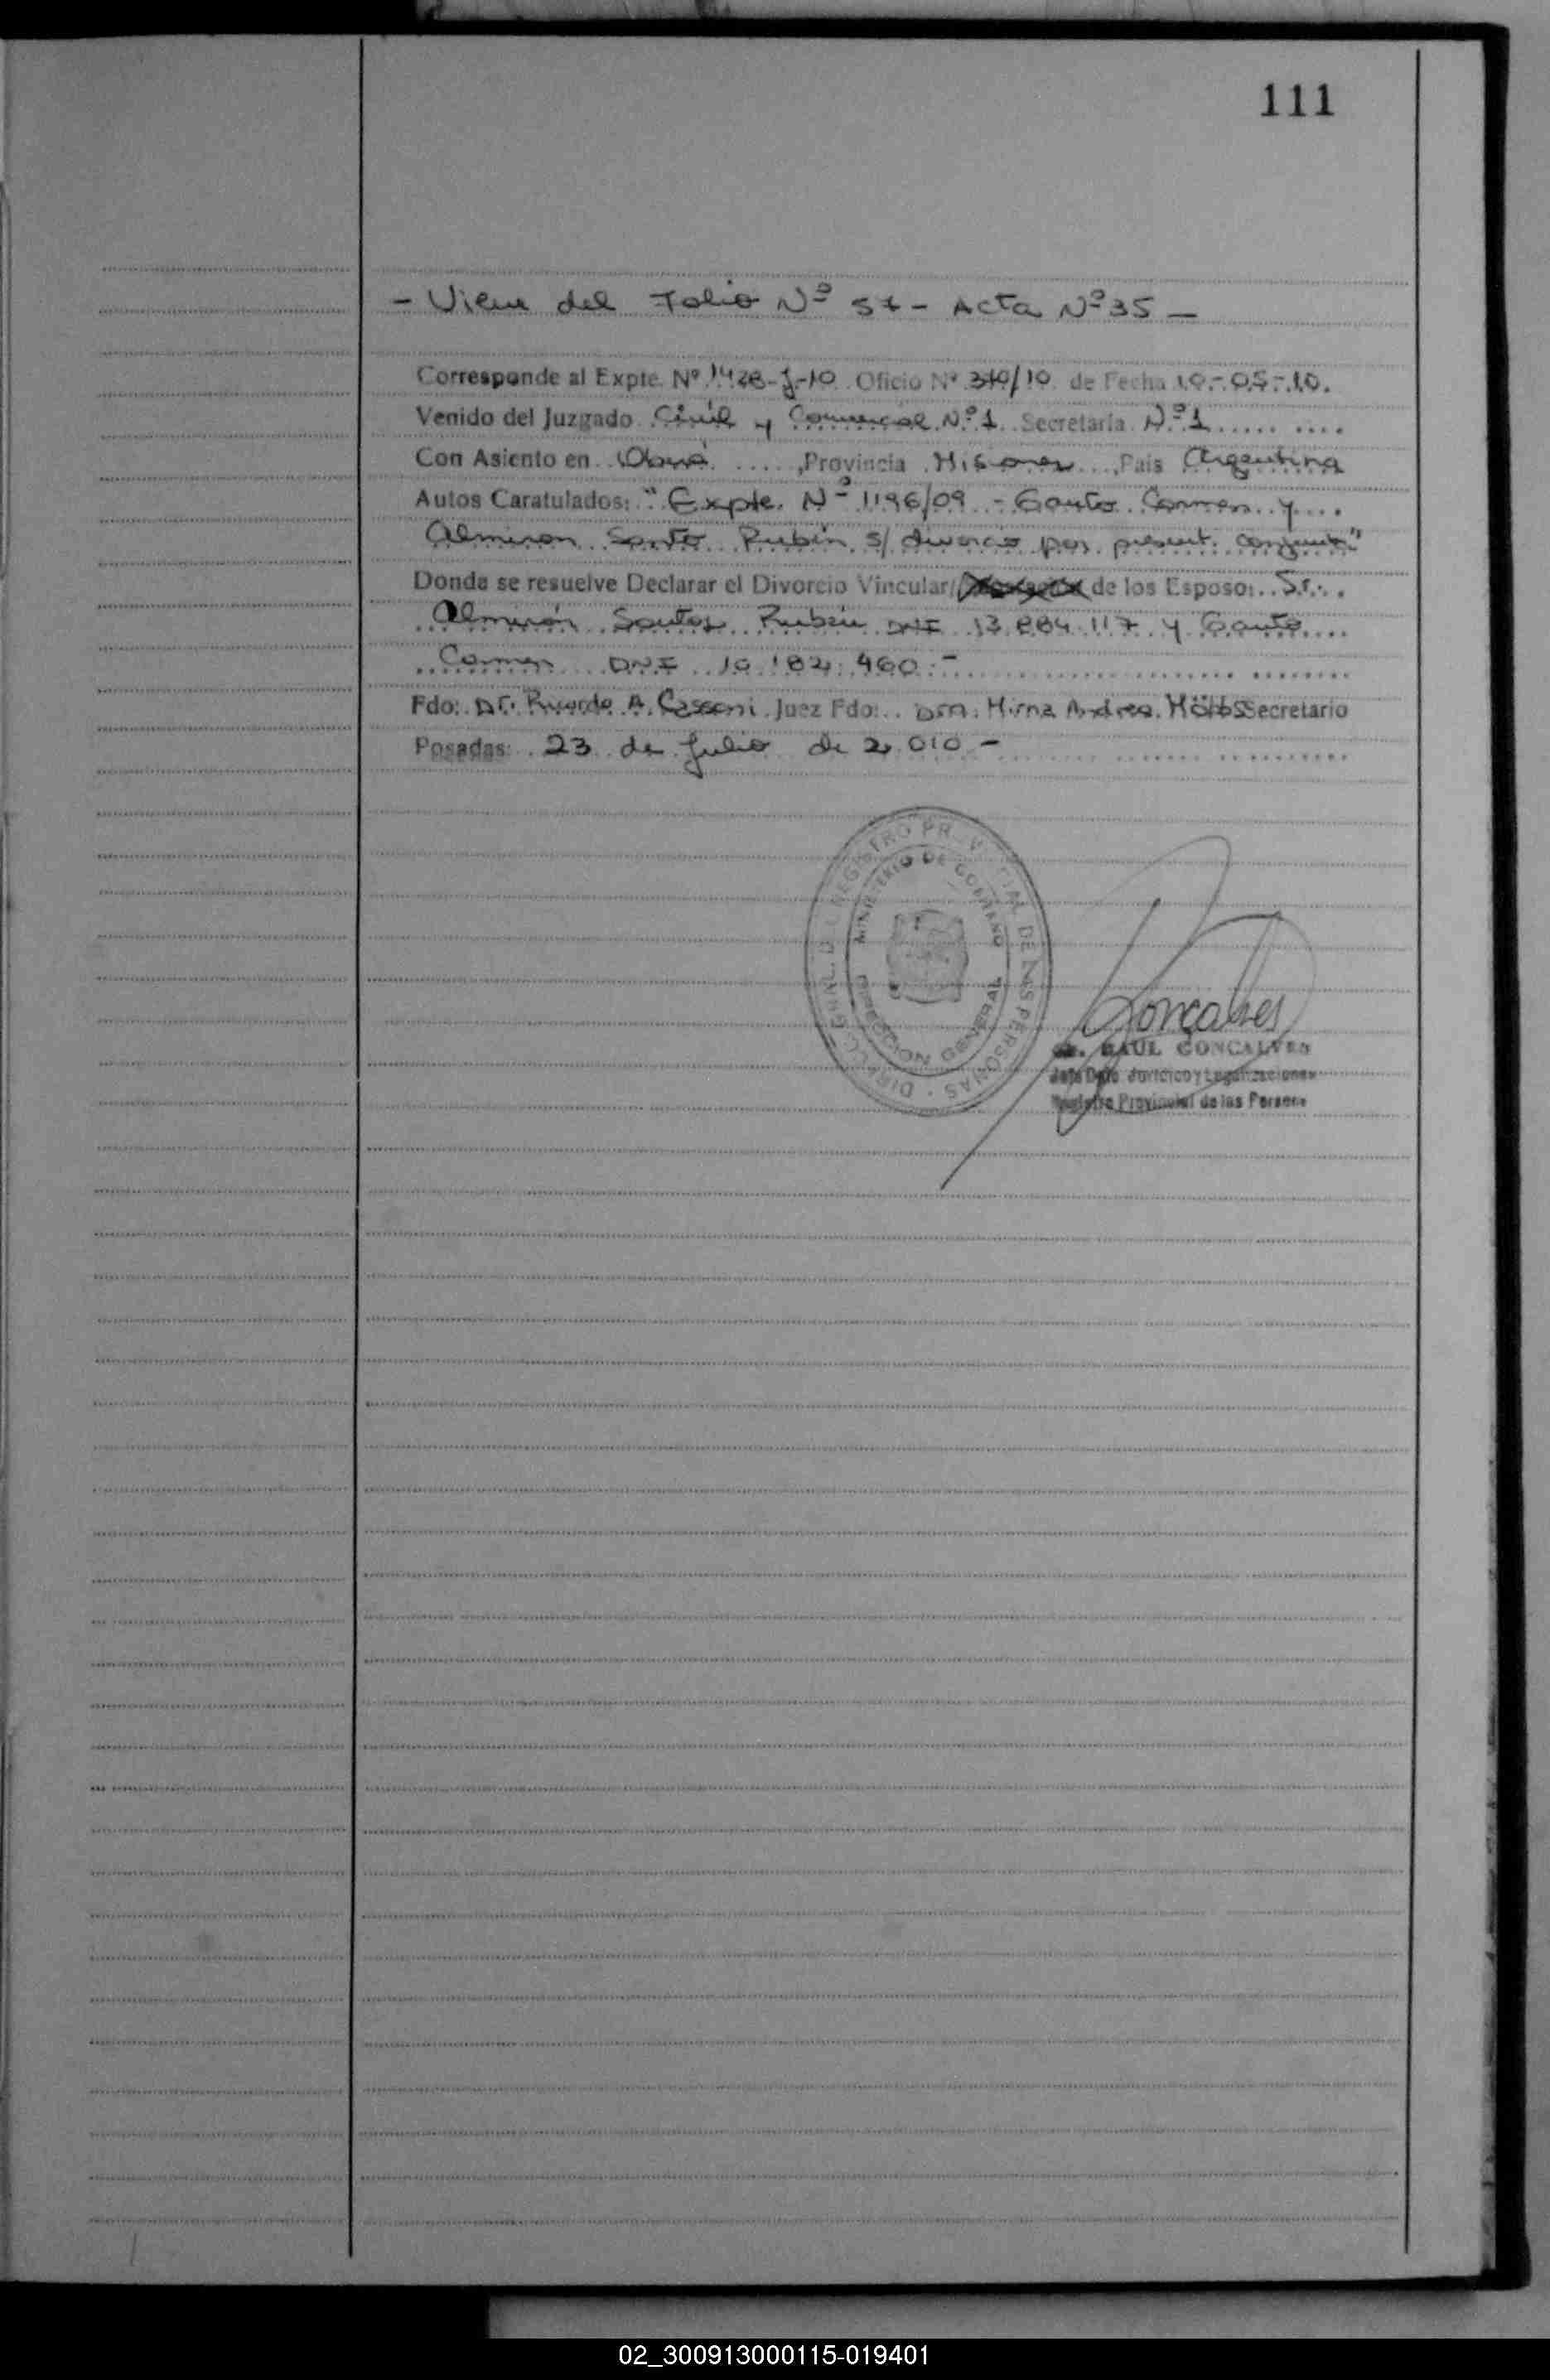 111
- Viene del Folio Nº 57 - Acta Nº 35 -
Corresponde al Expte. Nº 1428-J-10 Oficio Nº 310/10 de Fecha 10-05-10.
Venido del Juzgado Civil y Comercial Nº 1 Secretaria Nº 1
Con Asiento en Oberá, Provincia Misiones, Pais Argentina
Autos Caratulados: "Expte. Nº 1196/09 - Gauto Carmen y
Almiron Santo Rubén s/ divorcio por present. conjunta"
Donde se resuelve Declarar el Divorcio Vincular/ de los Esposo: Sr.
Almirón Santos Rubén DNI 13.884.117 y Gauto
Carmen DNI 10.182.460.-
Fdo: Dr. Ricardo A. Cassoni Juez Fdo: Dra. Mirna Andrea Secretario
Posadas: 23 de Julio de 2.010 -
DIRECC. GRAL. DEL REGISTRO PROVINCIAL DE LAS PERSONAS
MINISTERIO DE GOBIERNO
DIRECCION GENERAL
Goncalves
RAUL GONCALVES
Jefe Dpto. Juridico y Legalizaciones
Registro Provincial de las Persona
02_300913000115-019401